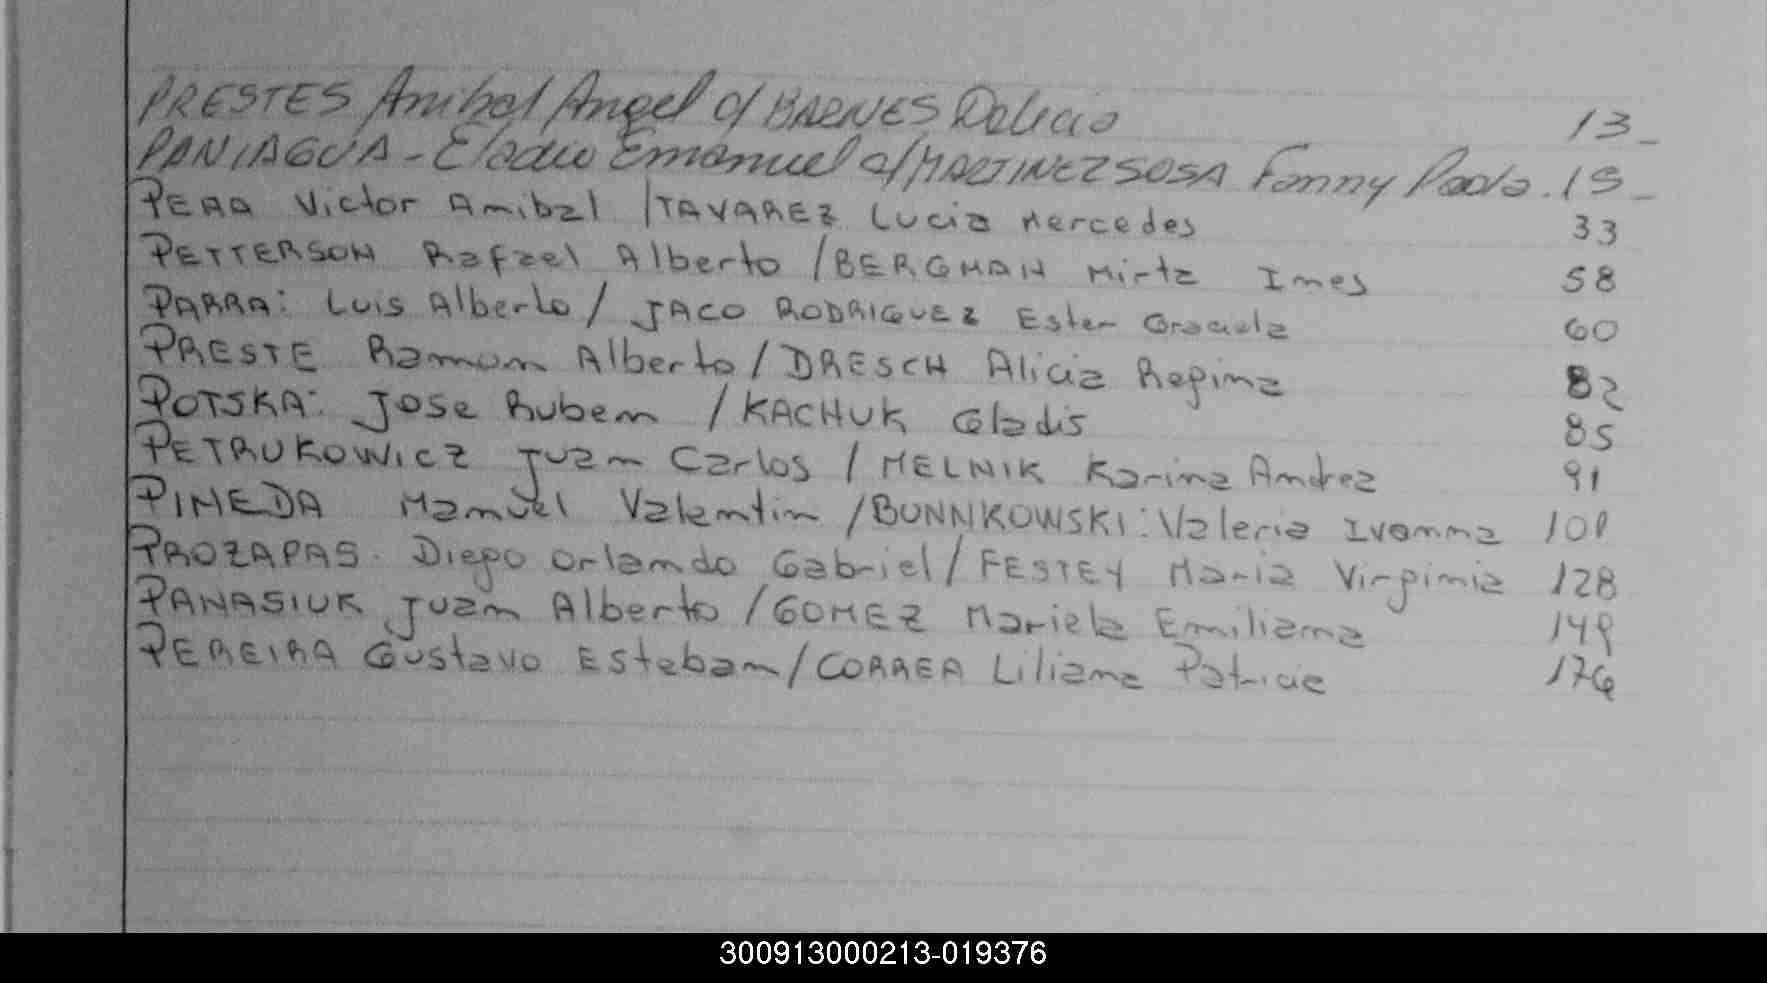 PRESTES Anibal Angel c/ BARNES Delicia 13_
PANIAGUA - Eladio Emanuel c/ MARTINEZ SOSA Fanny Paola. 15_
PERA Victor Anibal / TAVAREZ Lucia Mercedes 33
PETTERSON Rafael Alberto / BERGMAN Mirta Ines 58
PARRA: Luis Alberto / JACO RODRIGUEZ Ester Graciela 60
PRESTE Ramon Alberto / DRESCH Alicia Regina 82
POTSKA: Jose Ruben / KACHUK Gladis 85
PETRUKOWICZ Juan Carlos / MELNIK Karina Andrea 91
PINEDA Manuel Valentin / BUNNKOWSKI: Valeria Ivanna 101
PROZAPAS. Diego Orlando Gabriel / FESTEY Maria Virginia 128
PANASIUK Juan Alberto / GOMEZ Mariela Emiliana 149
PEREIRA Gustavo Esteban / CORREA Liliana Patricia 176
300913000213-019376